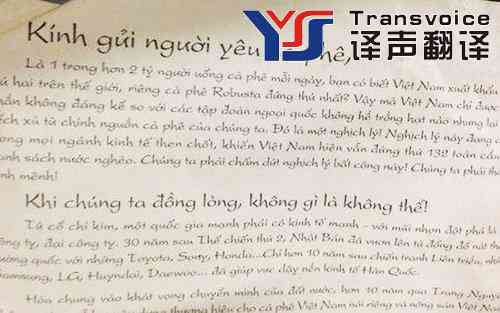 YS
Transvoice
译声翻译
Kính gửi người yêu phê,
Là 1 trong hơn 2 tỷ người uống cà phê mỗi ngày, bạn có biết Việt Nam xuất khẩu
hai trên thế giới, riêng cà phê Robusta đứng thứ nhất? Vậy mà Việt Nam chỉ được
không đáng kể so với các tập đoàn ngoại quốc không hề trồng hạt nào nhưng lại
xù từ chính nguồn cà phê của chúng ta. Đó là một nghịch lý! Nghịch lý này đang
mọi ngành kinh tế then chốt, khiến Việt Nam hiện vẫn đứng thứ 132 toàn
sách nước nghèo. Chúng ta phải chấm dứt nghịch lý bất công này! Chúng ta phải
mệnh!
Khi chúng ta đồng lòng, không gì là không thể!
Từ cổ chí kim, một quốc gia mạnh phải có kinh tế mạnh - với mũi nhọn đột phá là
ty, đại công ty. 30 năm sau Thế chiến thứ 2, Nhật Bản đã vươn lên từ đống đổ nát
quốc với những Toyota, Sony, Honda...Chỉ hơn 10 năm sau chiến tranh Liên triều,
LG, Huyndai, Daewoo... đã giúp vực dậy nền kinh tế Hàn Quốc.
Hòa chung vào khát vọng chuyển mình của đất nước, hơn 10 năm qua Trung Nguyên
thương hiệu cho cà phê Việt Nam nói riêng và nông sản Việt